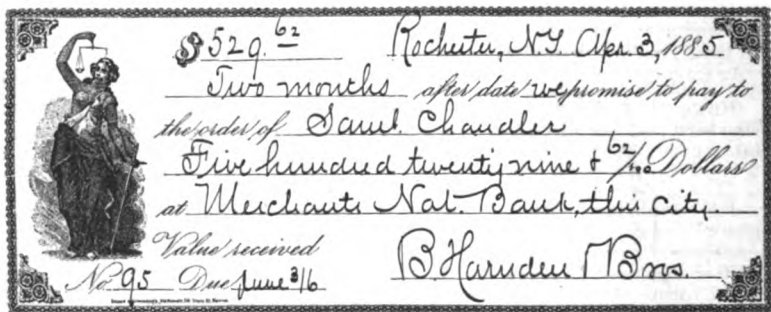 $529.62 Rochester, N.Y. Apr. 3, 1885
Two months after date we promise to pay to
the order of Saml. Chandler
Five hundred twenty nine & 62/100 Dollars
at Merchants Nat. Bank, this city.
Value received
No 95 Due June 3/6 B. Harnden Bros.